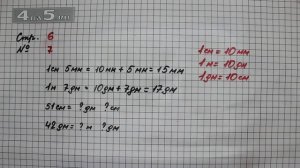 4 на 5.ми
Стр. 6
№ 7
1см 5мм = 10мм + 5мм = 15мм
1м 7дм = 10дм + 7дм = 17дм
51см = ? дм ? см
42дм = ? м ? дм
1см = 10мм
1м = 10дм
1дм = 10см